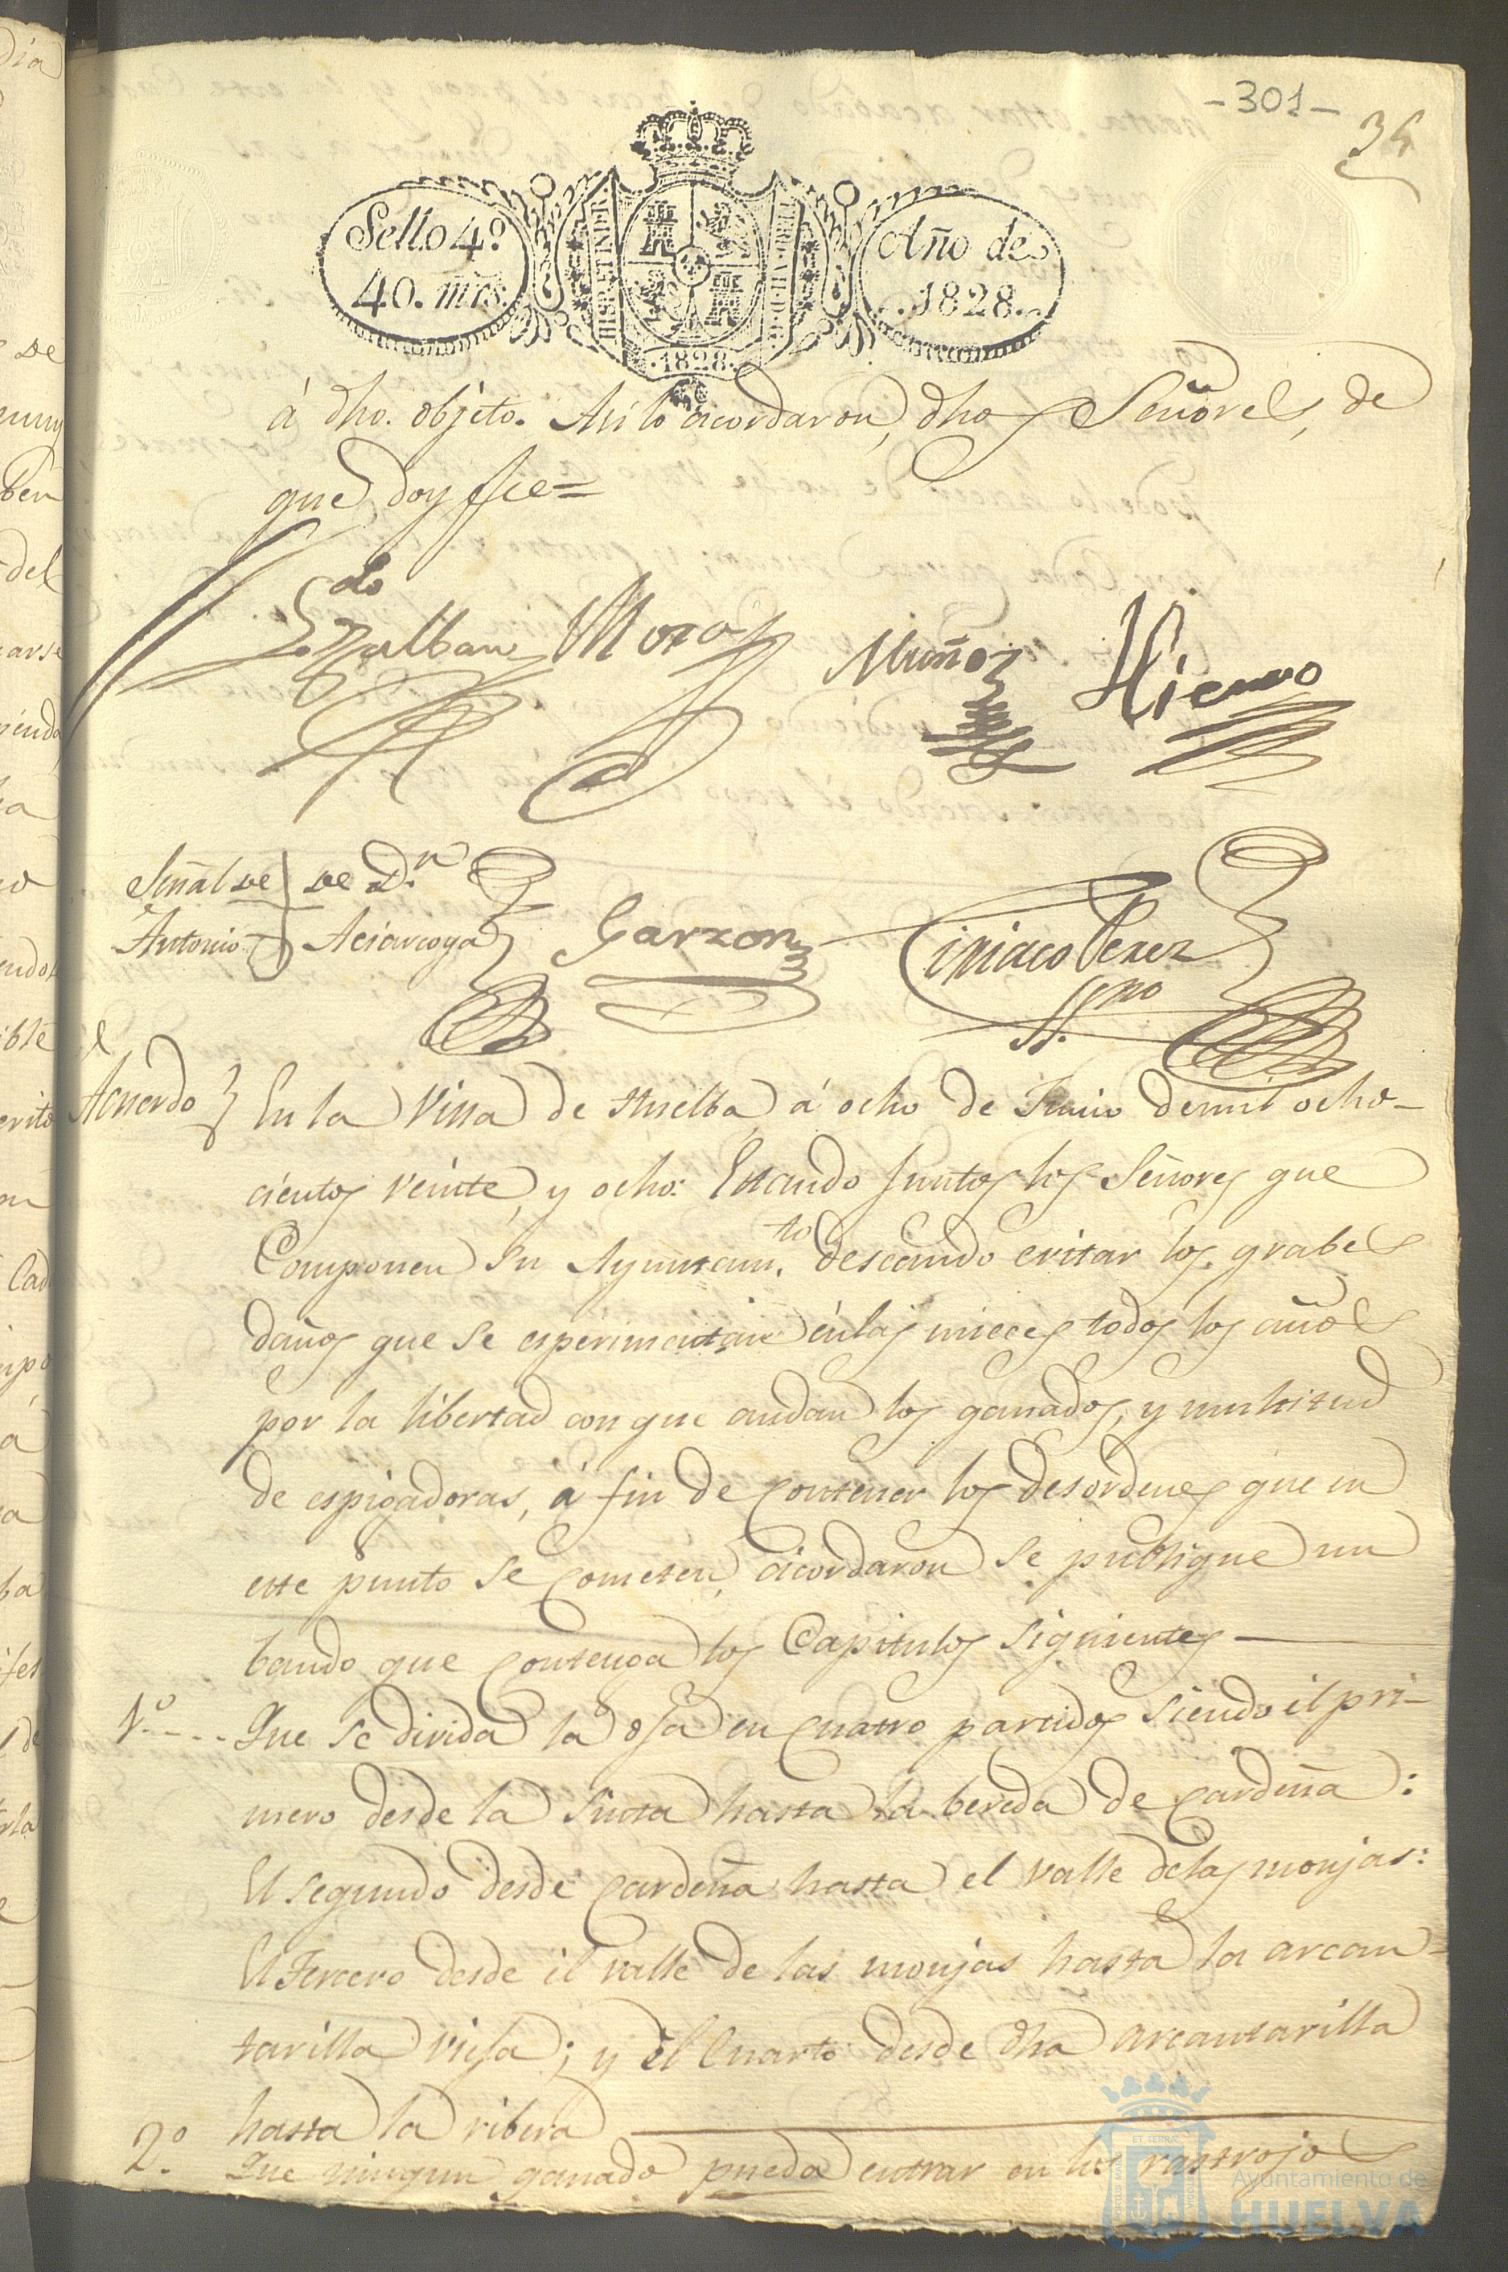 -301-
34
Sello 4º
40. mrs.
Año de
1828.
1828.
á dho. objeto. Asi lo acordaron, dhos Señores, de
que doy fee=
Ldo
Zalban Mora
Muñoz
Hierro
Señal de de Dn.
Antonio Aciarcoya
Garzon
Ciriaco Perez
SSno
Acuerdo En la Villa de Huelba á ocho de Junio de mil ocho-
cientos veinte, y ocho: Estando Juntos los Señores que
Componen su Ayuntam.to deseando evitar los grabes
daños que se esperimentan en las mieces todos los años
por la libertad con que andan los ganados, y multitud
de espigadoras, á fin de contener los desordenes que en
este punto se cometen, acordaron se publique un
bando que contenga los Capitulos siguientes
1º.-.. Que se divida la oja en cuatro partidos siendo el pri-
mero desde la hasta la bereda de Cardeña:
El segundo desde Cardeña hasta el valle de las monjas:
El Tercero desde el valle de las monjas hasta la arcan-
tarilla vieja; y el Cuarto desde dha arcantarilla
hasta la ribera
2º. Que ningun ganado pueda entrar en los rastrojos
Ayuntamiento de
HUELVA